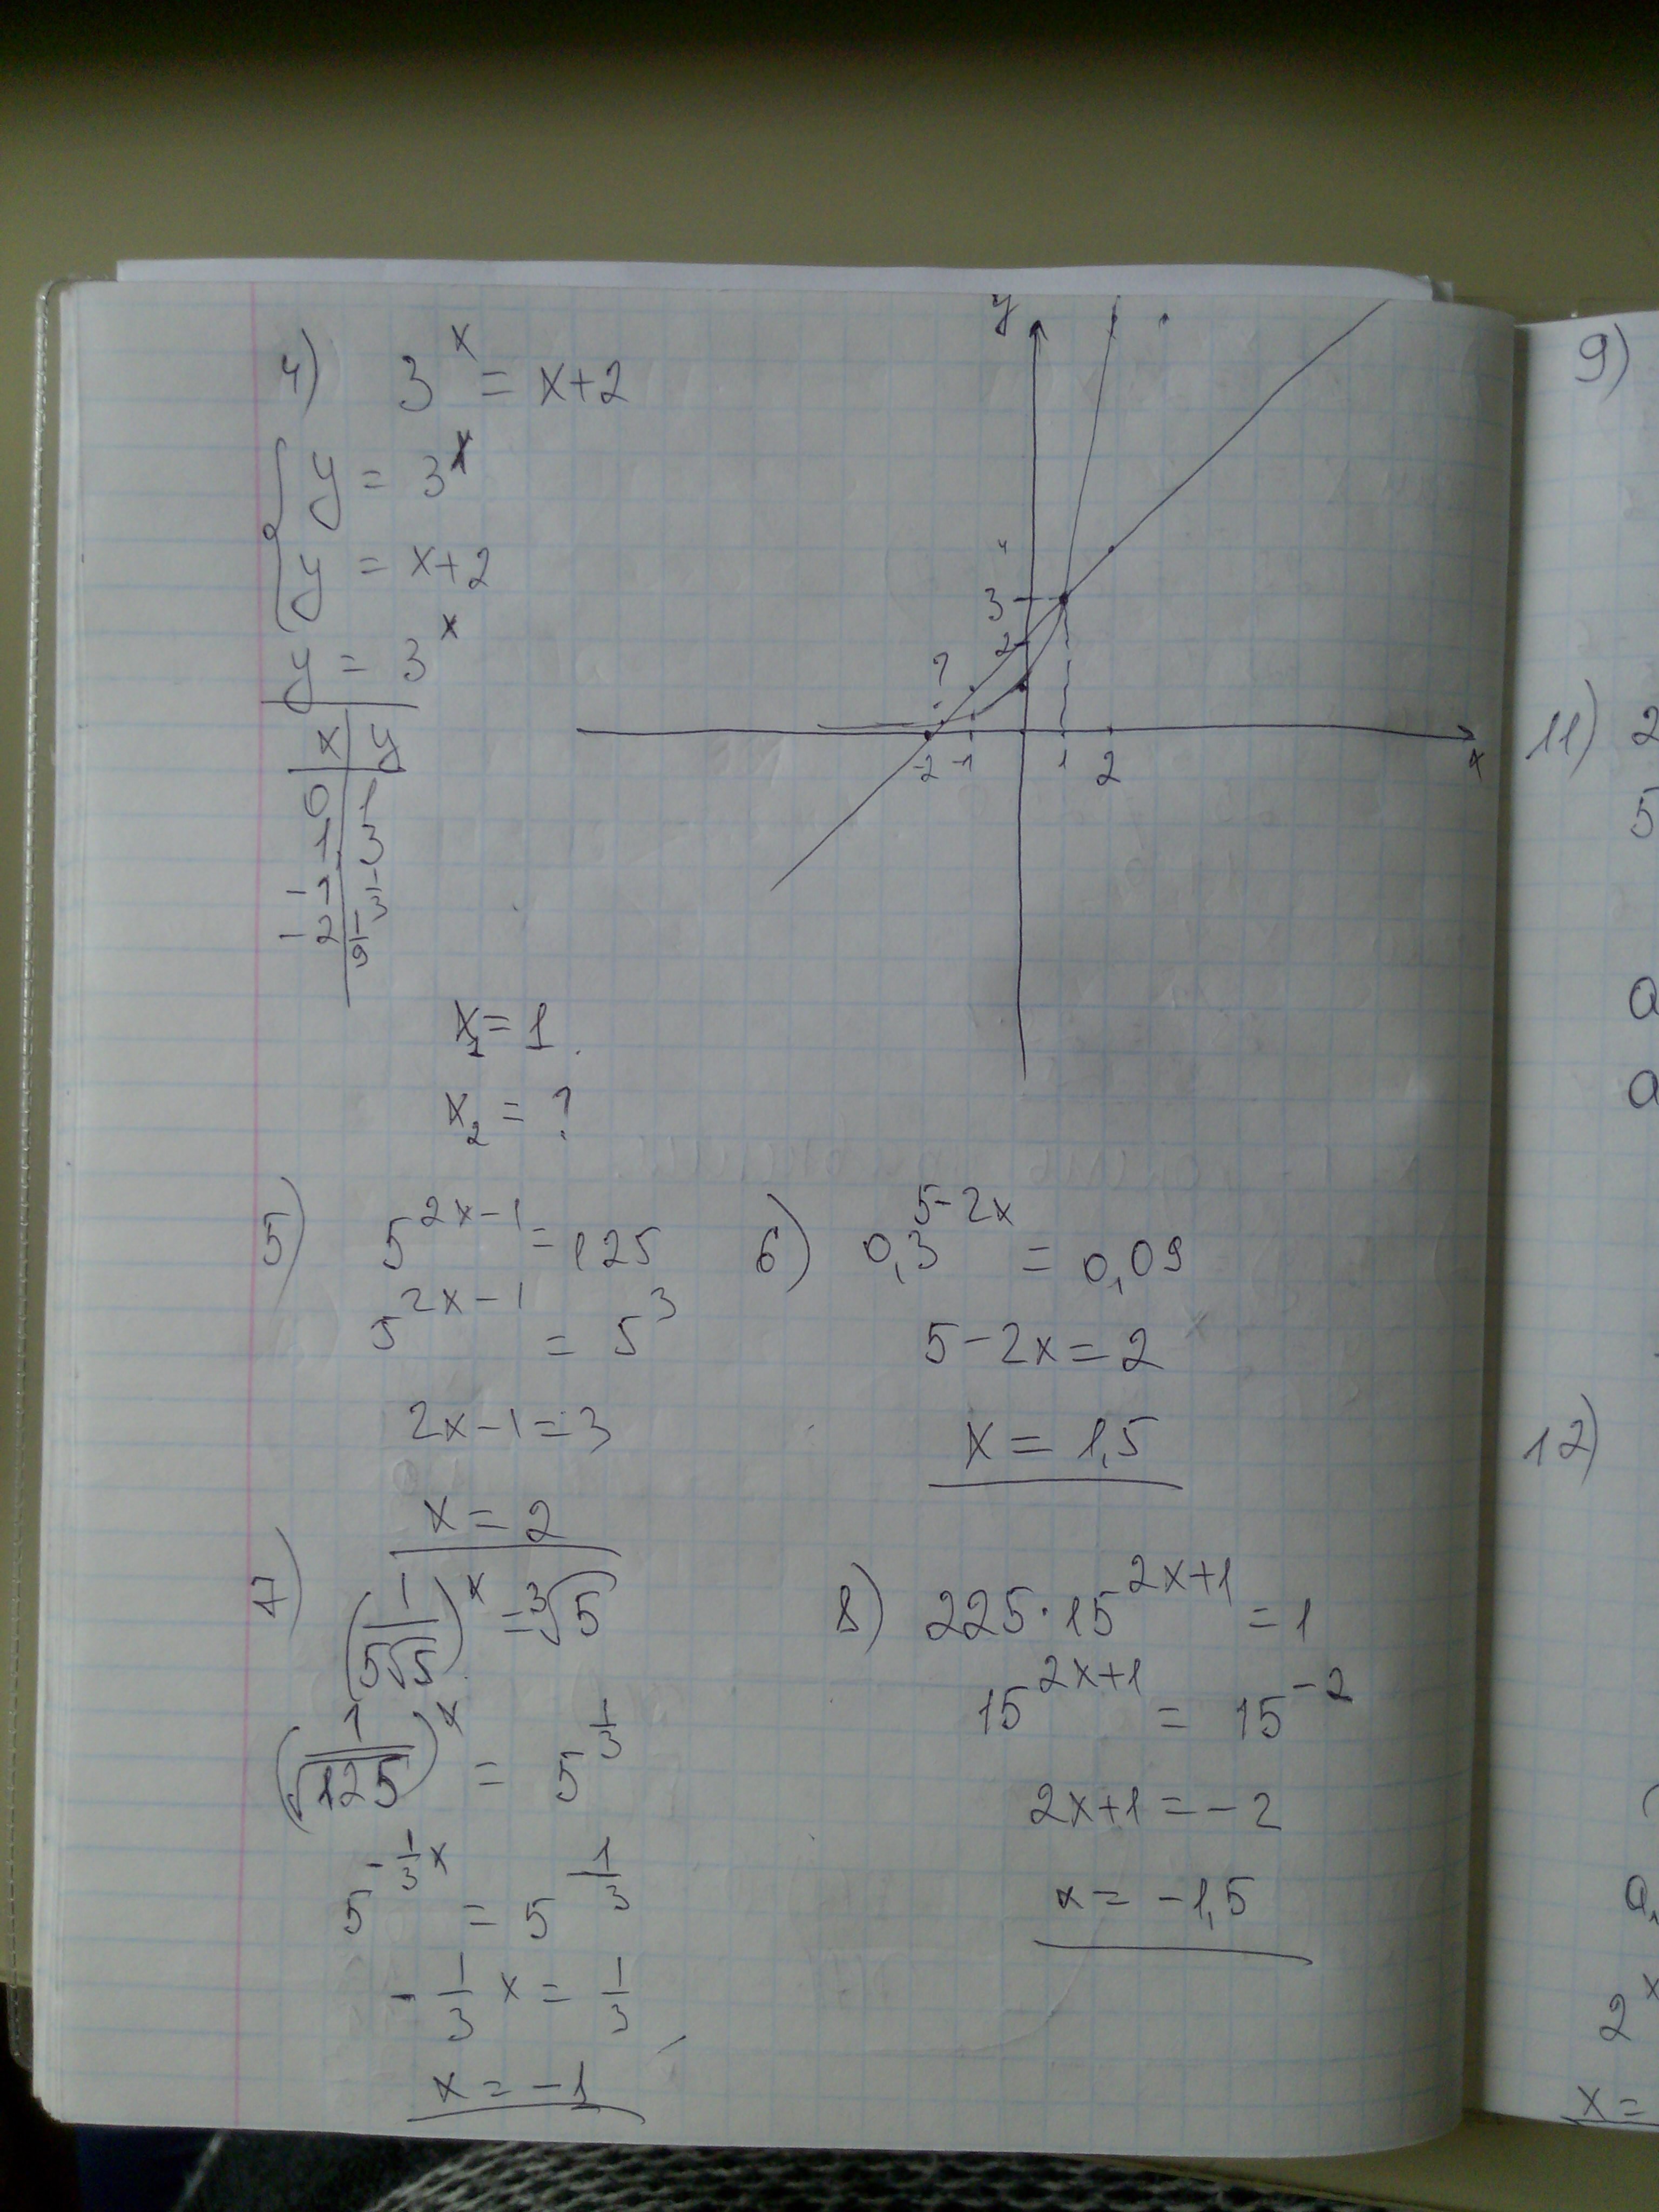 4) 3^x = x+2
y = 3^x
y = x+2
y = 3^x
x | y
0 | 1
1 | 3
-1 | 1/3
-2 | 1/9
y
3
2
?
-2 -1 1 2 x
x₁ = 1
x₂ = ?
5) 5^(2x-1) = 125
5^(2x-1) = 5^3
2x-1=3
x = 2
6) 0,3^(5-2x) = 0,09
5-2x=2
x = 1,5
7) (1/(5√5))^x = ³√5
(1/√125)^x = 5^(1/3)
5^(-1/3 x) = 5^(1/3)
-1/3 x = 1/3
x = -1
8) 225·15^(2x+1) = 1
15^(2x+1) = 15^(-2)
2x+1=-2
x = -1,5
9)
11) 2
5
a
a
12)
2^x
x=